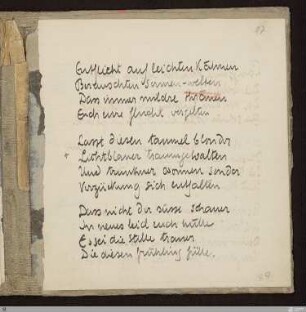 17
Entflieht auf leichten Kähnen
Berauschten sonnen-welten
Dass immer mildre tränen
Euch eure flucht vergelten
Lasst diesen taumel blonder
Lichtblauer traumgewalten
Und trunkner wonnen sonder
Verzückung sich entfalten
Dass nicht der süsse schauer
In neues leid euch hülle
Es sei die stille trauer
Die diesen frühling fülle.